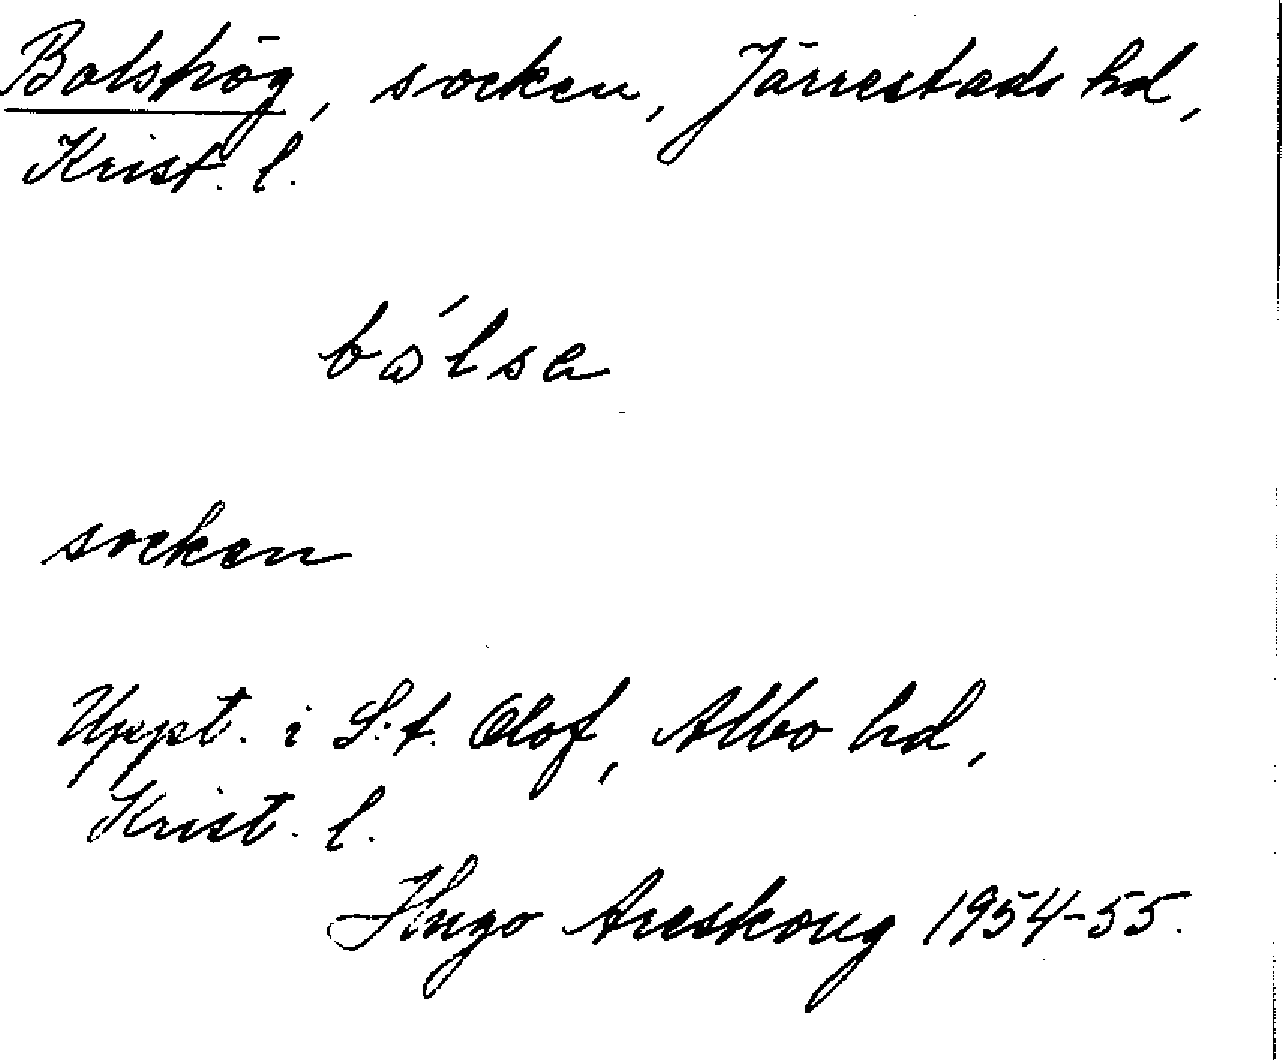 Bolshög, socken, Järrestads hd,
Krist. l.
socken
Uppt. i S:t. Olof, Albo hd,
Krist. l.
Hugo Areskoug 1954-55.